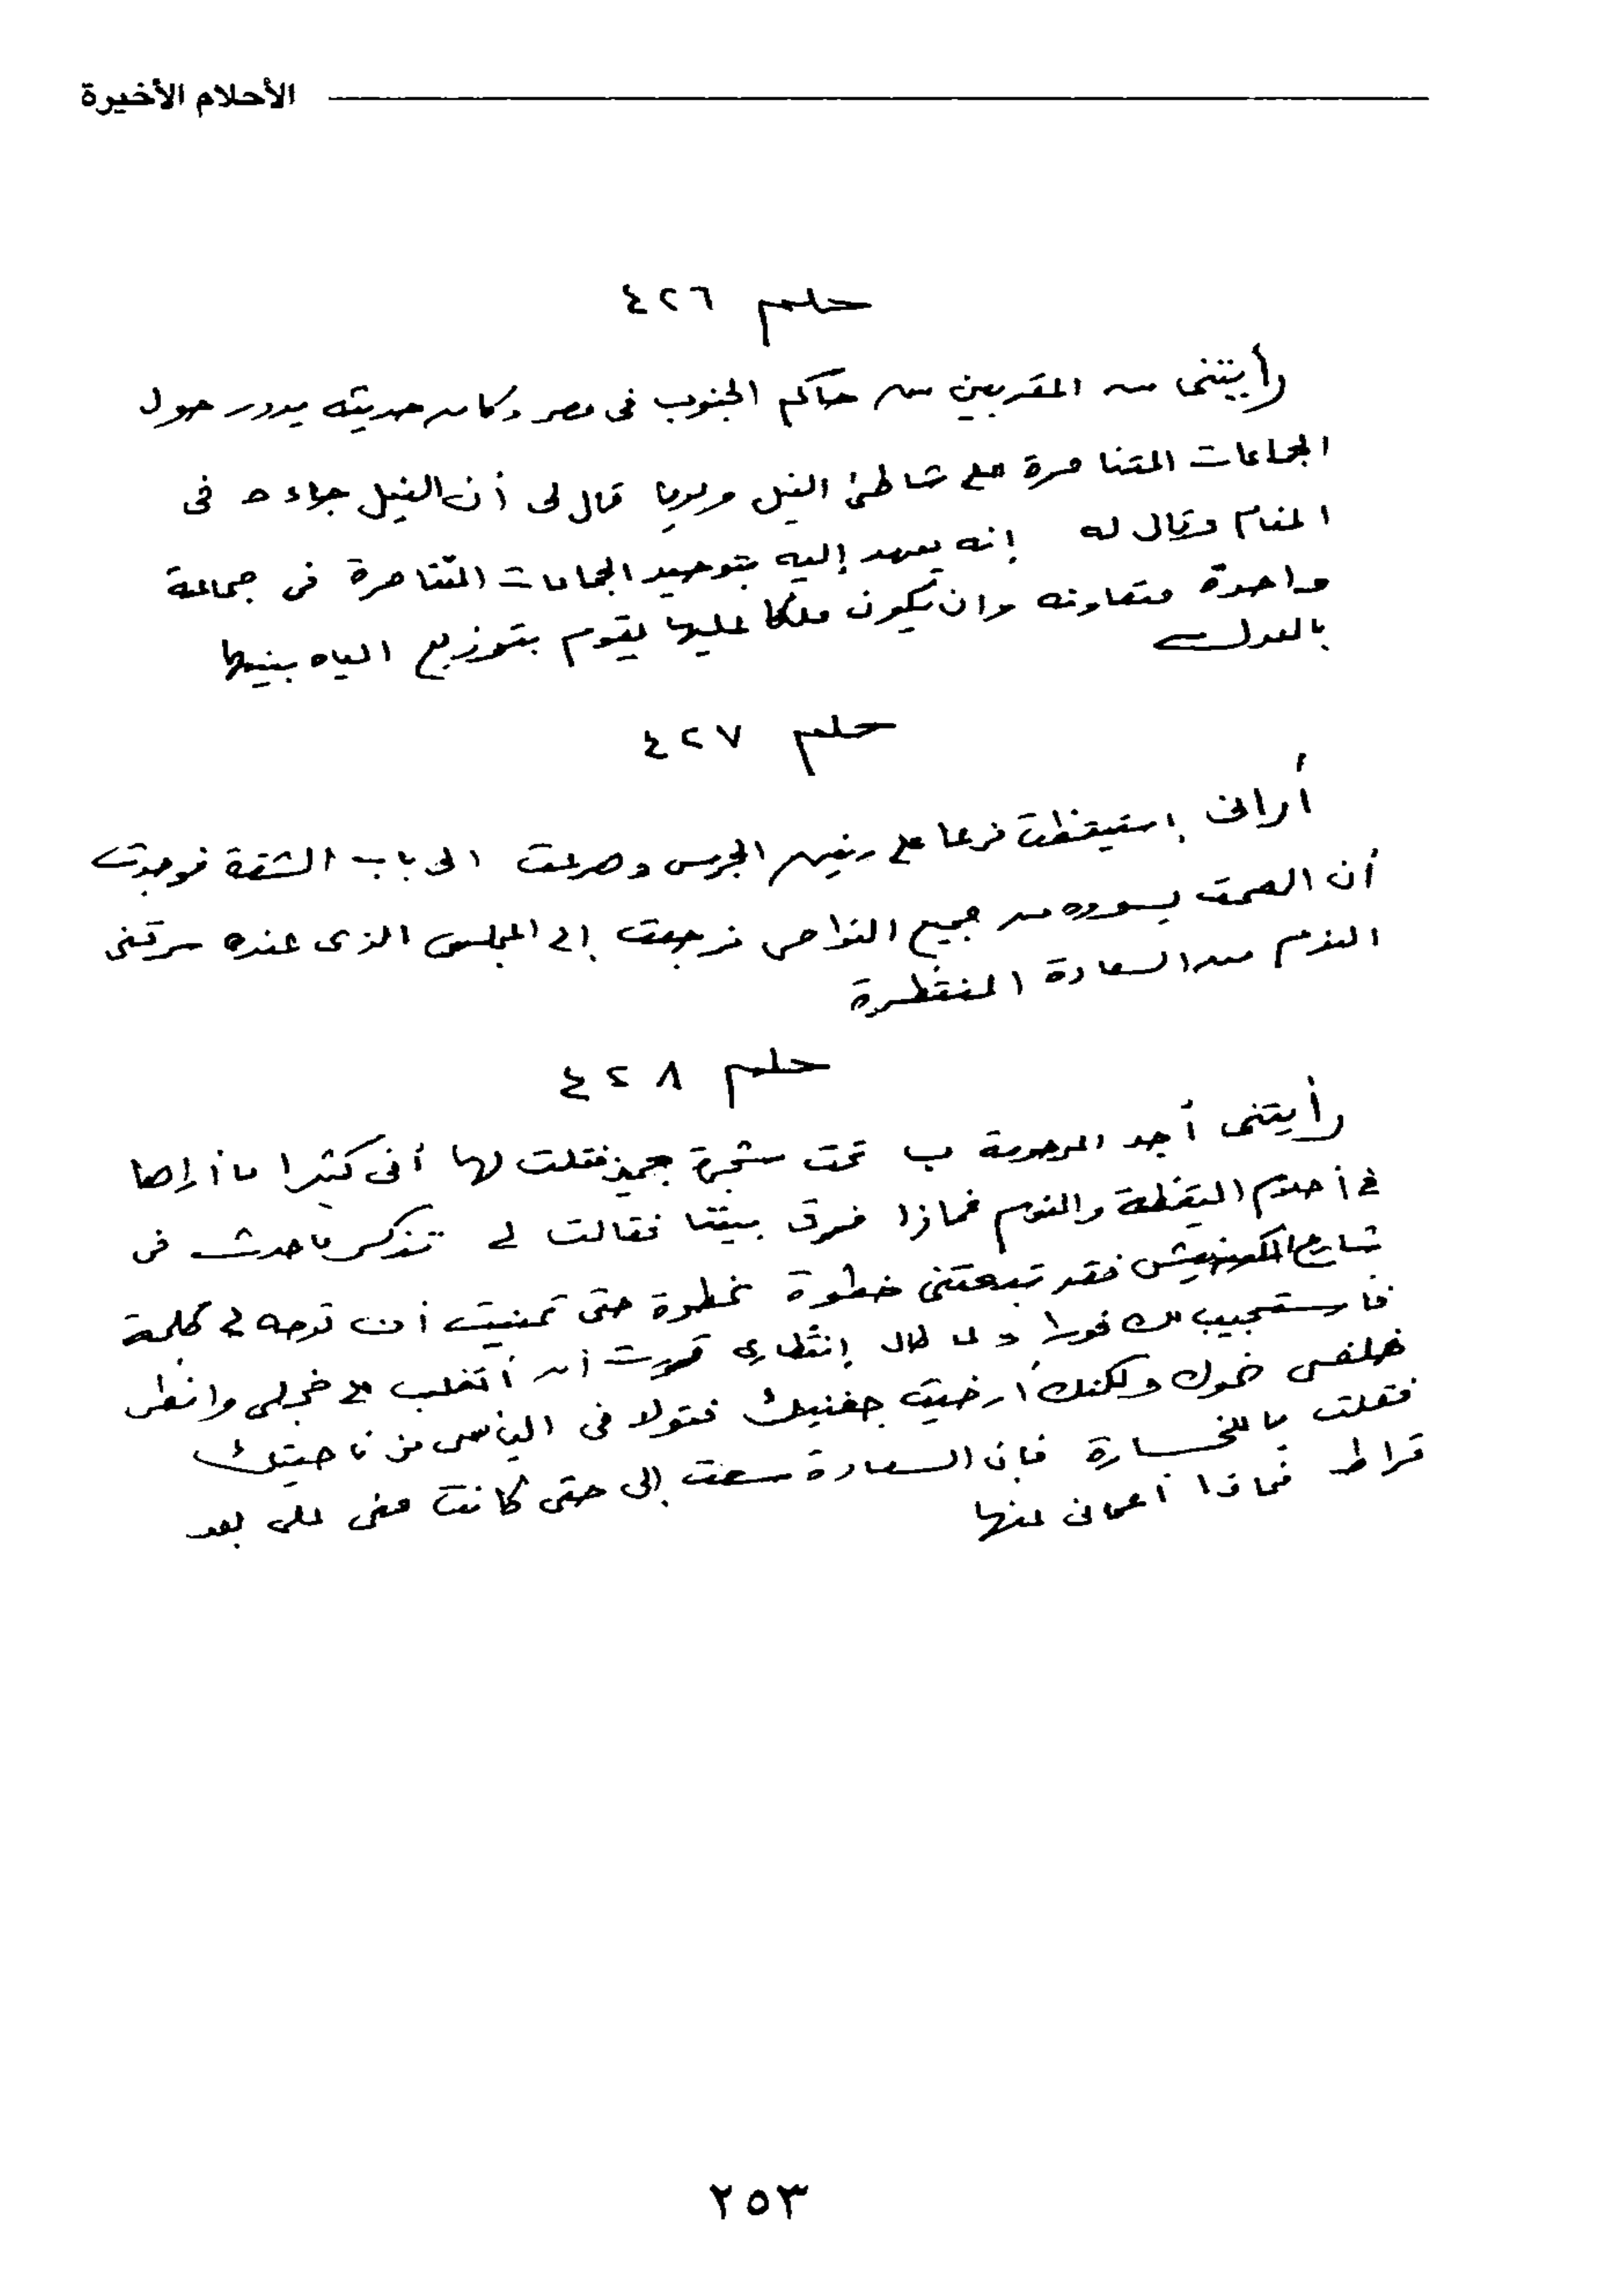 الأحلام الأخيرة
حلم ٤٢٦
رأيتنى من المقربين من حاكم الجنوب فى مصر وكان حديثه يدور حول
الجماعات المتناحرة على شاطئ النيل ويوما قال لى أن النيل جاءه فى
المنام وقال له إنه يعهد إليه بتوحيد الجماعات المتناحرة فى جماعة
واحدة متعاونه وان يكون ملكا عليها يقوم بتوزيع المياه بينها
بالعدل
حلم ٤٢٧
أرانى إستيقظت فزعا على رنين الجرس وهرعت الى باب الشقة فوجدت
أن الصمت يسوده من جميع النواحى فرجعت إلى المجلس الذى عنده سرقنى
النوم من السعادة المنتظرة
حلم ٤٢٨
رأيتنى أجد المرحومة ب تحت شجرة جميز فقلت لها أنى كثيرا ما أراها
فى أحلام اليقظة والنوم فماذا فرق بيننا فقالت لى تذكر ما حدث فى
شارع الكورنيش فقد تبعتنى خطوة بخطوة حتى تمنيت أن توجه لى كلمة
فأستجيب لك فورا ولما طال إنتظارى قررت أن أتغلب على خجلى وانظر
خلفى نحوك ولكنك أرخيت جفنيك فتولانى اليأس من ناحيتك
فقلت يا للخسارة فإن السعادة سعت إلى حتى كانت منى على بعد
قراط فماذا أعمانى عنها
٢٥٣